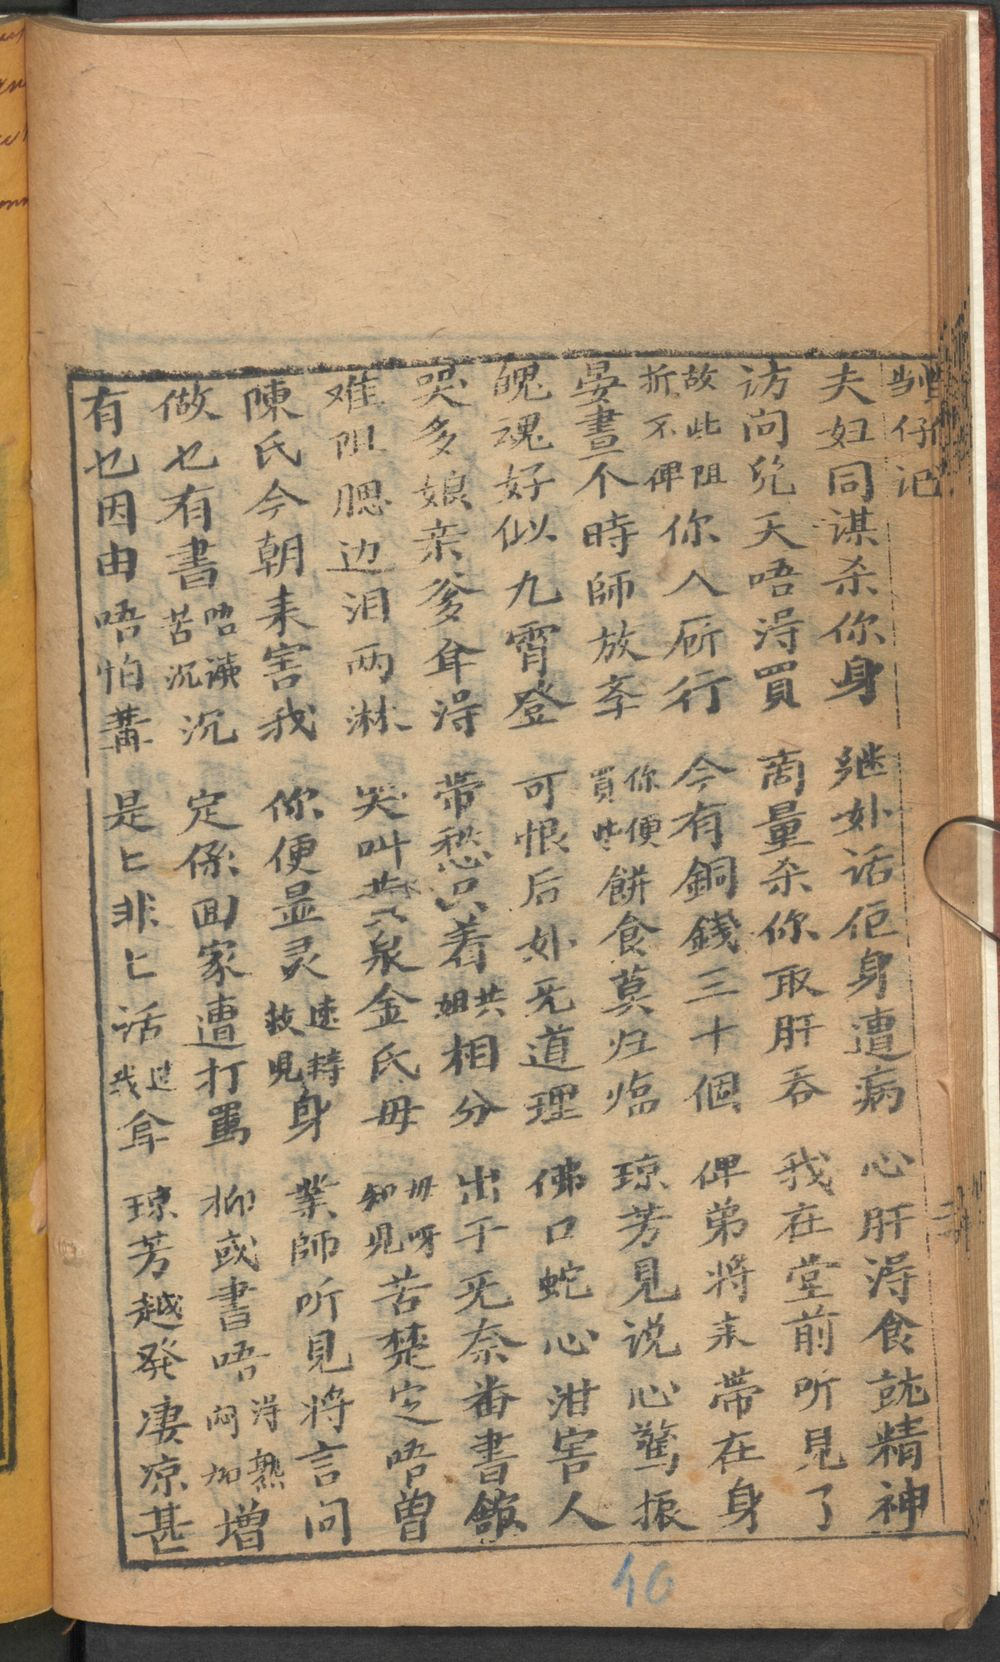 仔记
夫妇同谋杀你身 继妙话佢身遭病 心肝淂食就精神
访问兇天唔淂買 商量杀你取肝吞 我在堂前听見了
故此阻折不俾你人厨行 今有銅錢三十個 俾弟将来带在身
晏晝个時師放孝 你便買些餅食莫归临 琼芳見说心驚振
魄魂好似九霄登 可恨后妙无道理 佛口蛇心泔害人
哭多娘亲爹耸淂 带愁只着共姐相分 出于无奈番書館
难阻腮边泪两淋 哭叫黄泉金氏毋 毋呀知見苦楚定唔曽
陳氏今朝来害我 你便显灵速持救児身 業師听見将言问
做乜有書唔讀苦沉沉 定係回家遭打罵 抑或書唔淂熟闷加增
有乜因由唔怕講 是匕非匕话过我耸 琼芳越発凄凉甚
40